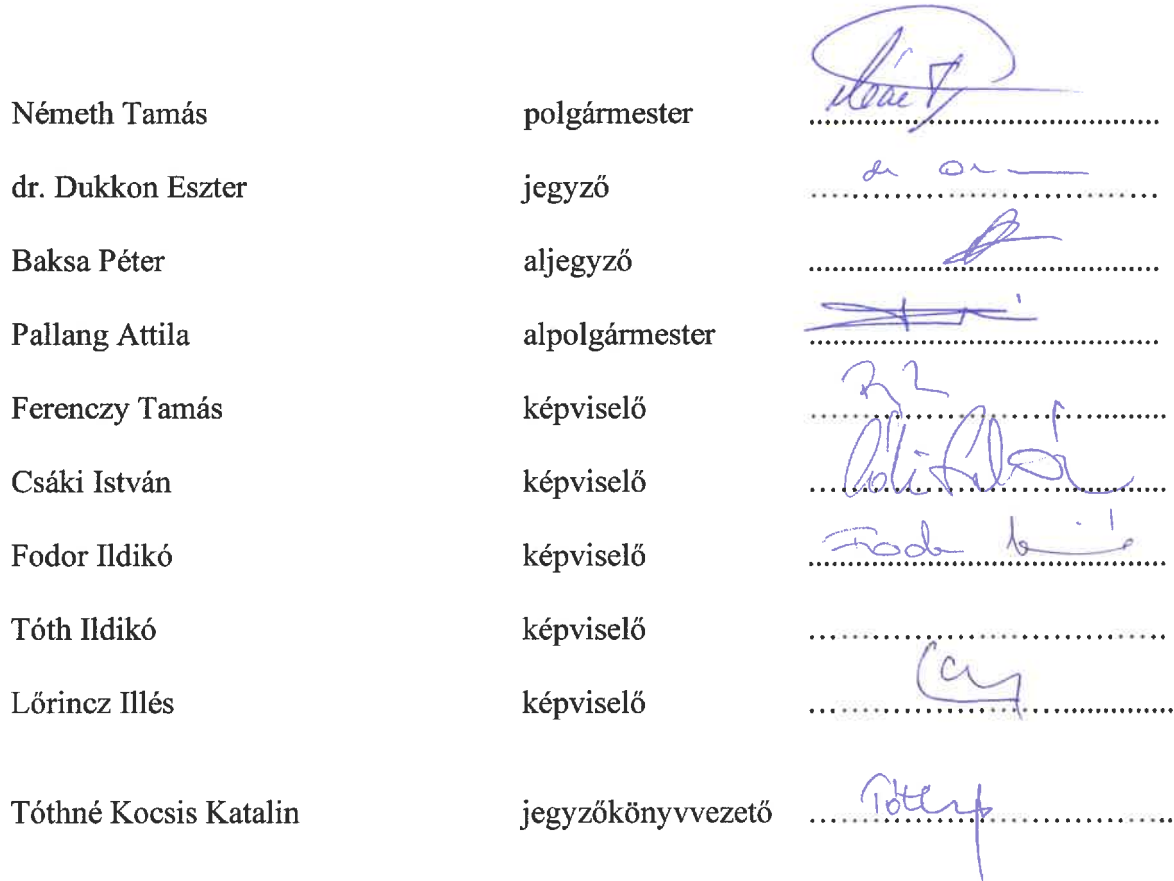 Németh Tamás polgármester
dr. Dukkon Eszter jegyző
Baksa Péter aljegyző
Pallang Attila alpolgármester
Ferenczy Tamás képviselő
Csáki István képviselő
Fodor Ildikó képviselő
Tóth Ildikó képviselő
Lőrincz Illés képviselő
Tóthné Kocsis Katalin jegyzőkönyvvezető